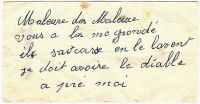 Maleure des Maleure
vous a la me grondé
il sarcarse en le lavent
je doit avoire le diable
a pré moi